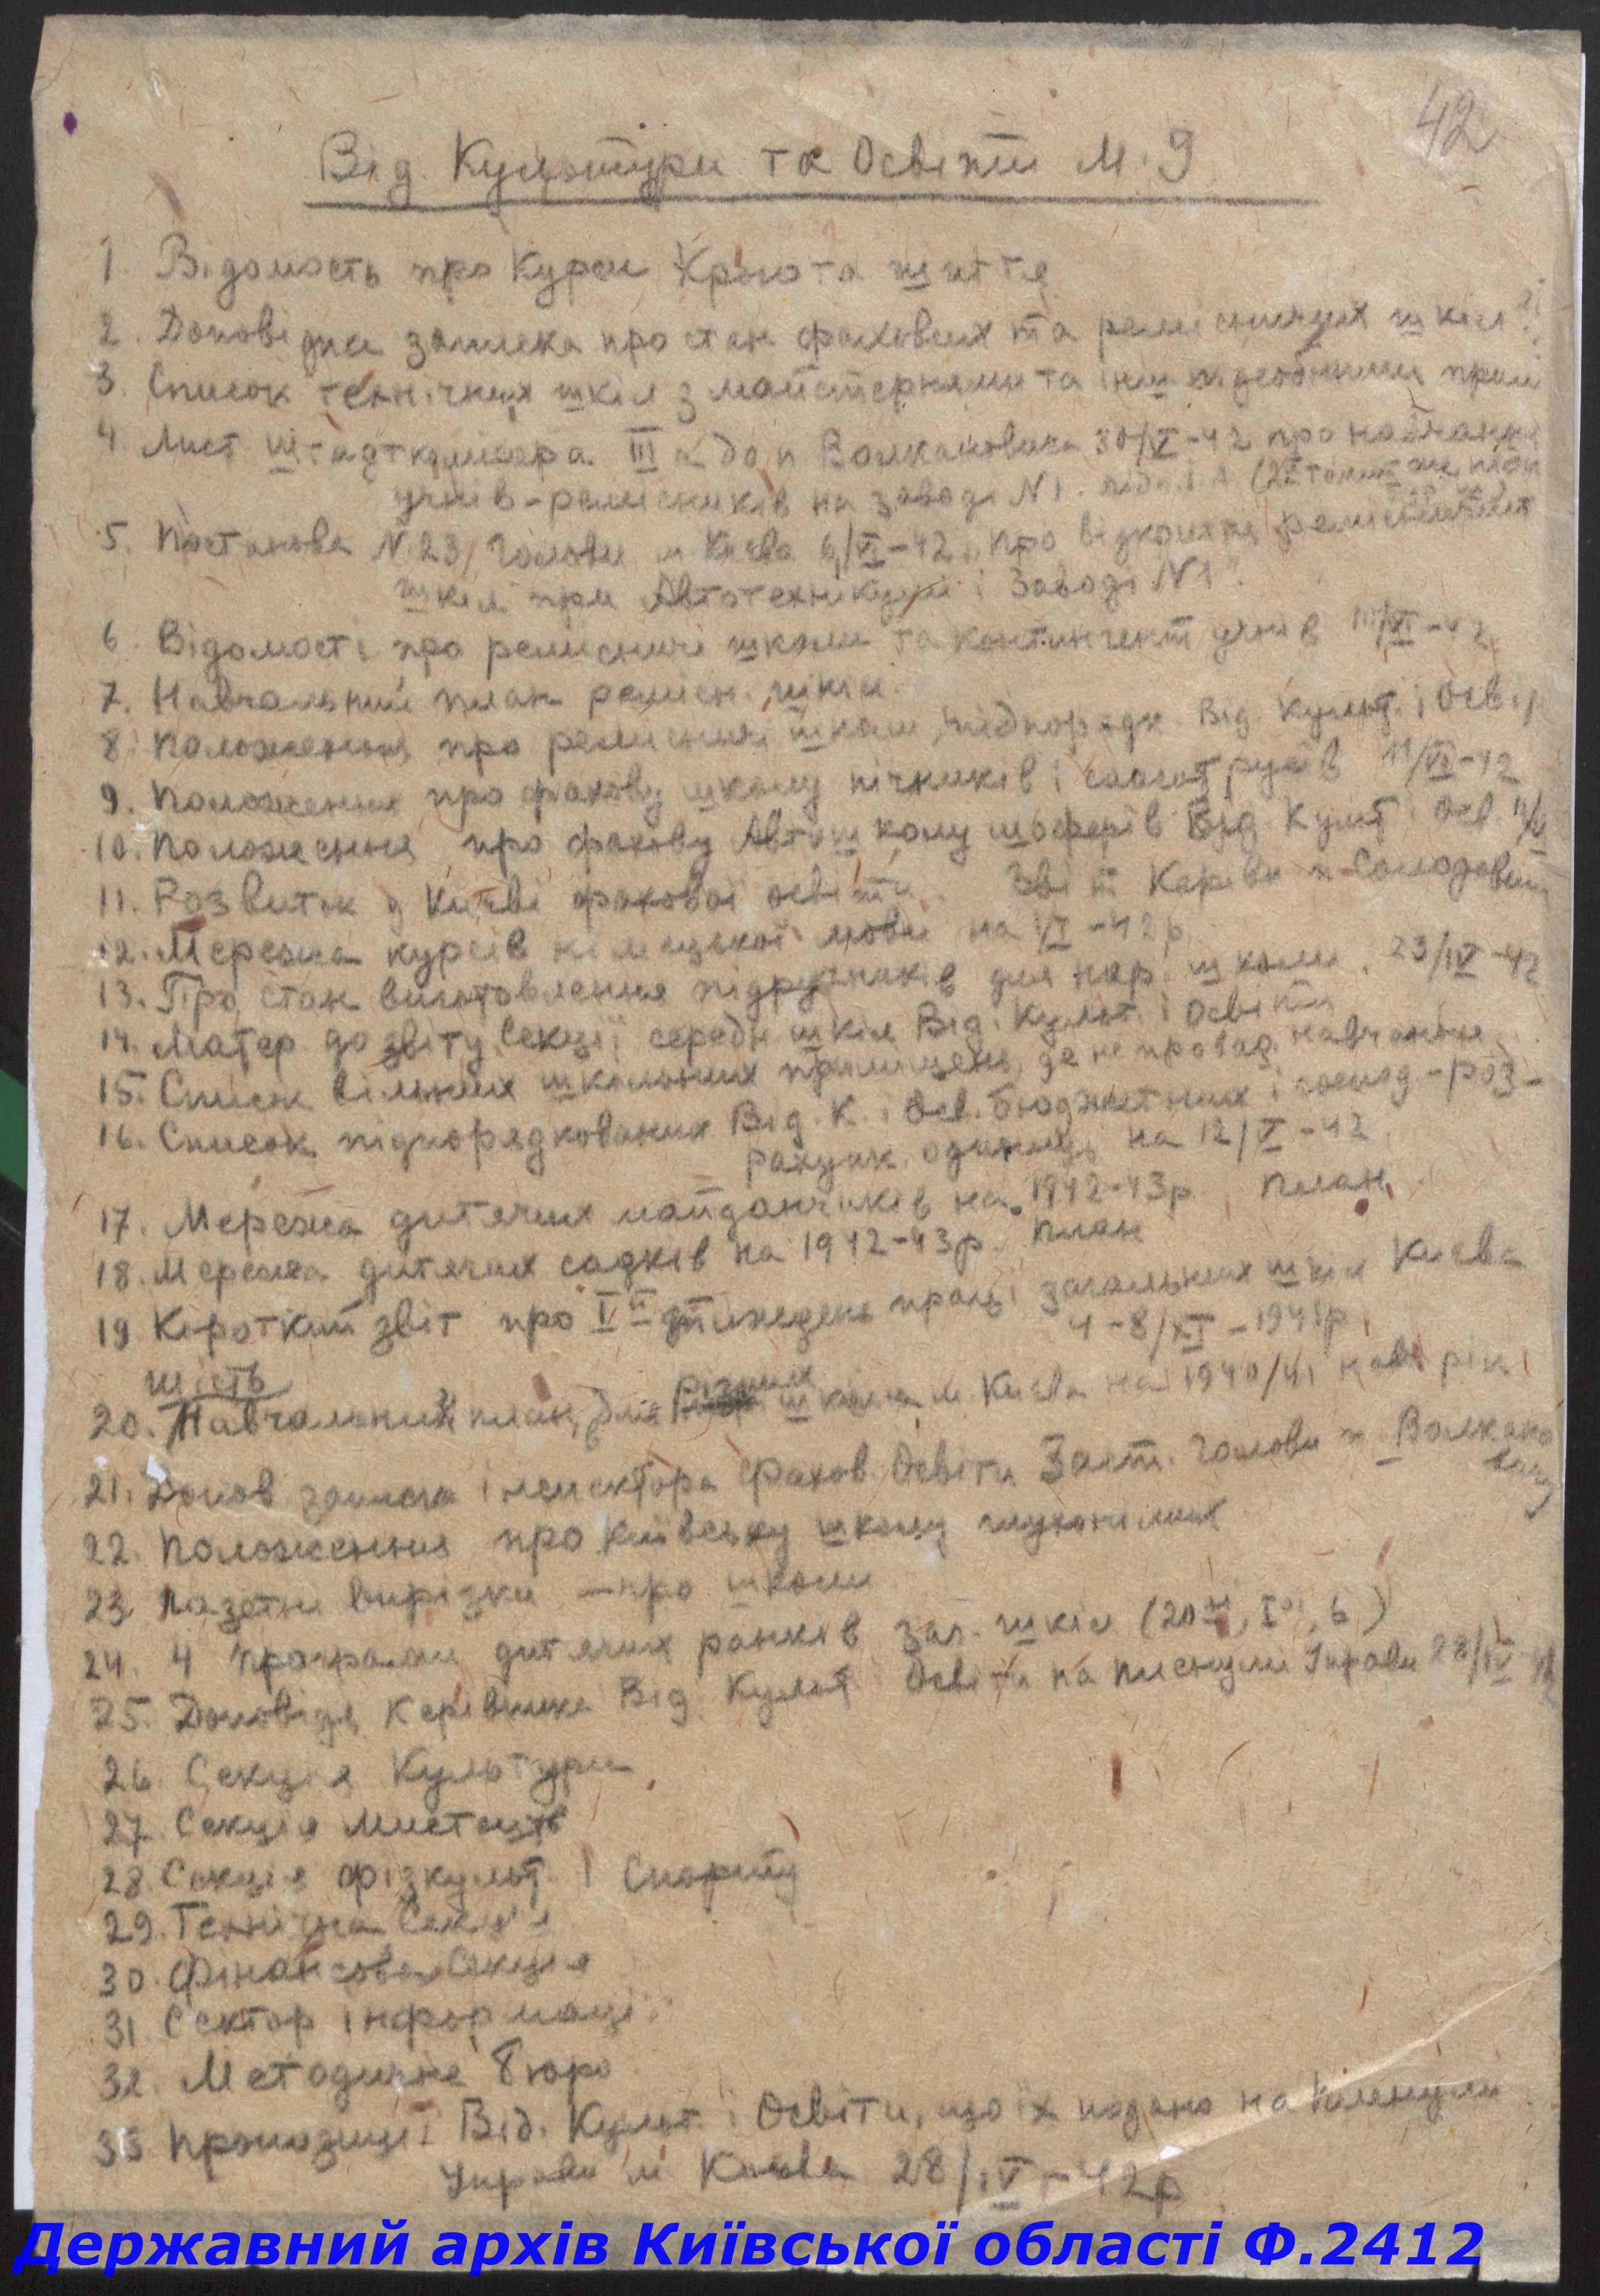 42
Від. Культури та Освіти М. У
1. Відомость про Курси Крою та шиття
2. Доповідна записка про стан фахових та ремісничих шкіл
3. Список технічних шкіл з майстернями та інш підсобними прим
4. Лист Штадткомісара III а до п Волкановича 30/V-42 про навчання
учнів-ремісників на заводі N 1.
5. Постанова N 23/ Голови м Києва 6/VI-42 „Про відкриття ремісничих
шкіл при Автотехнікумі і Заводі N1".
6. Відомості про ремісничі школи та контингент учнів 10/VI-42
7. Навчальний план ремісн. шкіл.
8. Положення про ремісничі школи, підпорядк Від. Культ. і Осв.
9. Положення про фахову школу пічників і сажотрусів 11/VI-42
10. Положення про фахову Автошколу шоферів Від Культ і Осв. 11/VI
11. Розвиток у Києві фахової освіти. Звіт Керівн п. Солодовн
12. Мережа курсів німецької мови на VI-42 р
13. Про стан виготовлення підручників для нар. школи. 23/IV-42
14. Матер до звіту Секції середн шкіл Від. Культ. і Освіти
15. Список вільних шкільних приміщень, де не провад. навчання
16. Список підпорядкованих Від. К. і Осв. бюджетних і господ-роз-
рахунк. одиниць на 12/V-42
17. Мережа дитячих майданчиків на 1942-43р. план
18. Мережа дитячих садків на 1942-43р. план
19 Короткий звіт про Iий тиждень праці загальних шкіл Києва
4-8/XI-1941р.
шість
різних
20. Навчальний план, для шкіл м. Києва на 1940/41 навч рік
21. Допов записка інспектора Фахов. Освіти Заст. Голови п Волкано
вичу
22. Положення про Київську школу глухонімих
23 Газетні вирізки — про школи
24. 4 програми дитячих ранків заг. шкіл (20ої, Iої, 6)
25. Доповідь Керівника Від Культ Освіти на пленумі Управи 28/IV-42
26 Секція Культури
27. Секція Мистецтв
28. Секція фізкульт. і Спорту
29. Технічна Секція
30. Фінансова Секція
31 Сектор інформації
32. Методичне бюро
33 Пропозиції Від. Культ. і Освіти, що їх подано на пленумі
Управи м Києва 28/IV-42р
Державний архів Київської області Ф.2412